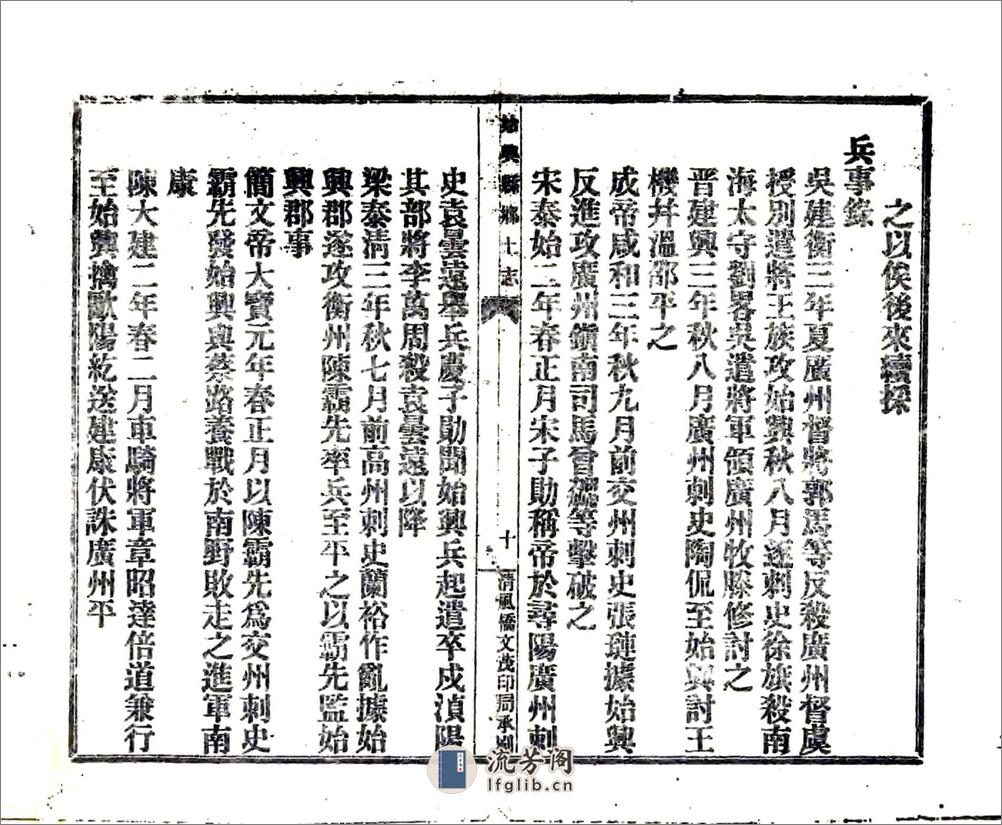 之以俟後來續採
兵事錄
吳建衡三年夏廣州督將郭馬等反殺廣州督虞
授別遣將王族攻始興秋八月逐刺史徐旗殺南
海太守劉畧吳遣將軍領廣州牧滕修討之
晉建興三年秋八月廣州刺史陶侃至始興討王
機幷溫邵平之
成帝咸和三年秋九月前交州刺史張璉據始興
反進攻廣州鎭南司馬曾等擊破之
宋泰始二年春正月宋子勛稱帝於尋陽廣州刺
始興縣鄉土志
十
清風橋文茂印局承刋
史袁曇遠舉兵慶子勛聞始興兵起遣卒戍湞陽
其部將李萬周殺袁曇遠以降
梁泰清三年秋七月前高州刺史蘭裕作亂據始
興郡遂攻衡州陳霸先率兵至平之以霸先監始
興郡事
簡文帝大寶元年春正月以陳霸先爲交州刺史
霸先發始興與蔡路養戰於南野敗走之進軍南
康
陳大建二年春二月車騎將軍章昭達倍道兼行
至始興擒歐陽紇送建康伏誅廣州平
流芳阁
lfglib.cn